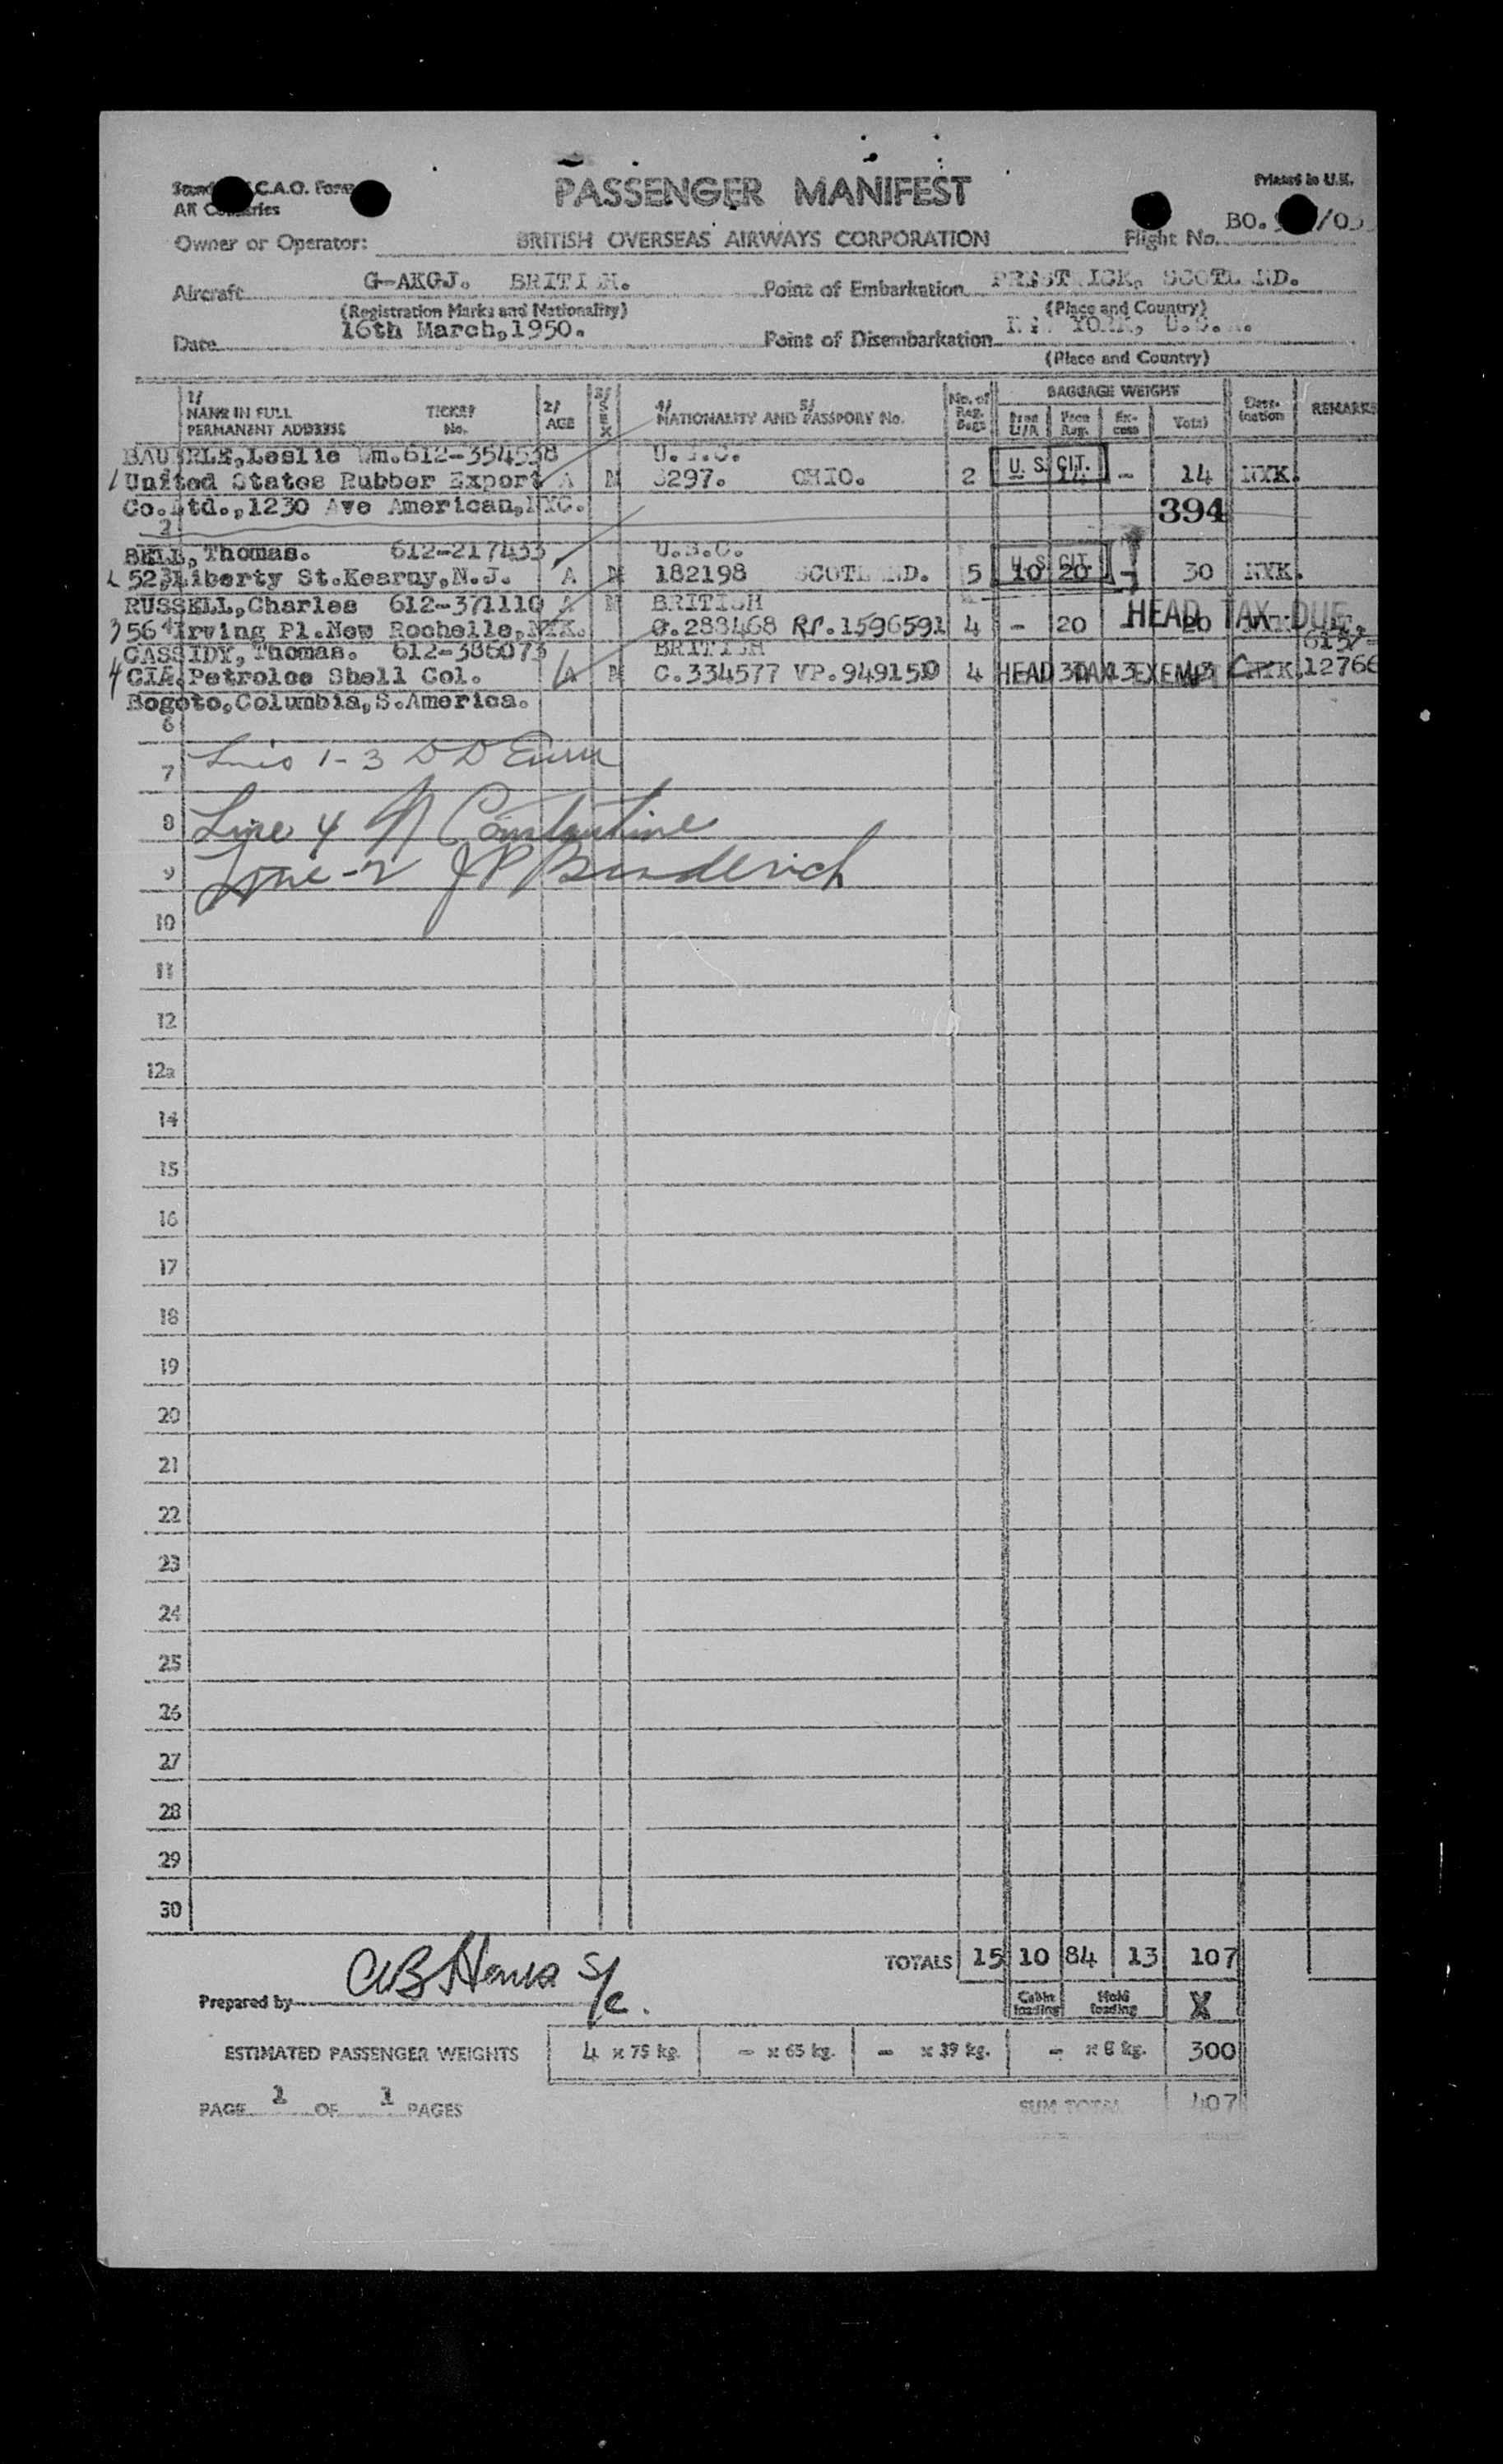 PASSENGER MANIFEST
Printed in U.K.
C.A.O. Form
All Countries
Owner or Operator: BRITISH OVERSEAS AIRWAYS CORPORATION
Flight No. BO.
Aircraft G-AKGJ. BRITISH.
(Registration Marks and Nationality)
Point of Embarkation PRESTWICK, SCOTLAND.
(Place and Country)
Date 16th March,1950.
Point of Disembarkation NEW YORK, U.S.A.
(Place and Country)
1/ NAME IN FULL PERMANENT ADDRESS TICKET No. 2/ AGE 3/ SEX 4/ NATIONALITY AND 5/ PASSPORT No. No. of Reg. Bags BAGGAGE WEIGHT Free Reg. Ex-cess Total Dest-ination REMARKS
Leslie Wm. 612-354538 U.S.C.
1 United States Rubber Export A M 3297. OHIO. 2 U. S. CIT. - 14 - 14 NYK.
Co.Ltd.,1230 Ave American,NYC. 394
2
BELL,Thomas. 612-217433 U.S.C.
2 523 Liberty St.Kearny,N.J. A M 182198 SCOTLAND. 5 U S CIT. 10 20 - 30 NYK.
RUSSELL,Charles 612-371110 A M BRITISH HEAD TAX DUE.
3 56 Irving Pl.New Rochelle,NYK. 288468 RP.1596591 4 - 20 - 20
CASSIDY,Thomas. 612-386073 BRITISH
4 CIA.Petroloe Shell Col. A M C.334577 VP.949150 4 HEAD TAX EXEMPT NYK. 12766
Bogoto,Columbia,S.America.
6
7 1-3 D D
8 Line 4 Constantine
9 Line-2 J P
10
11
12
12a
14
15
16
17
18
19
20
21
22
23
24
25
26
27
28
29
30
TOTALS 15 10 84 13 107
Prepared by
Cabin loading Hold loading X
ESTIMATED PASSENGER WEIGHTS 4 x 75 kg. - x 65 kg. - x 39 kg. - x 8 kg. 300
PAGE 1 OF 1 PAGES
SUM TOTAL 407